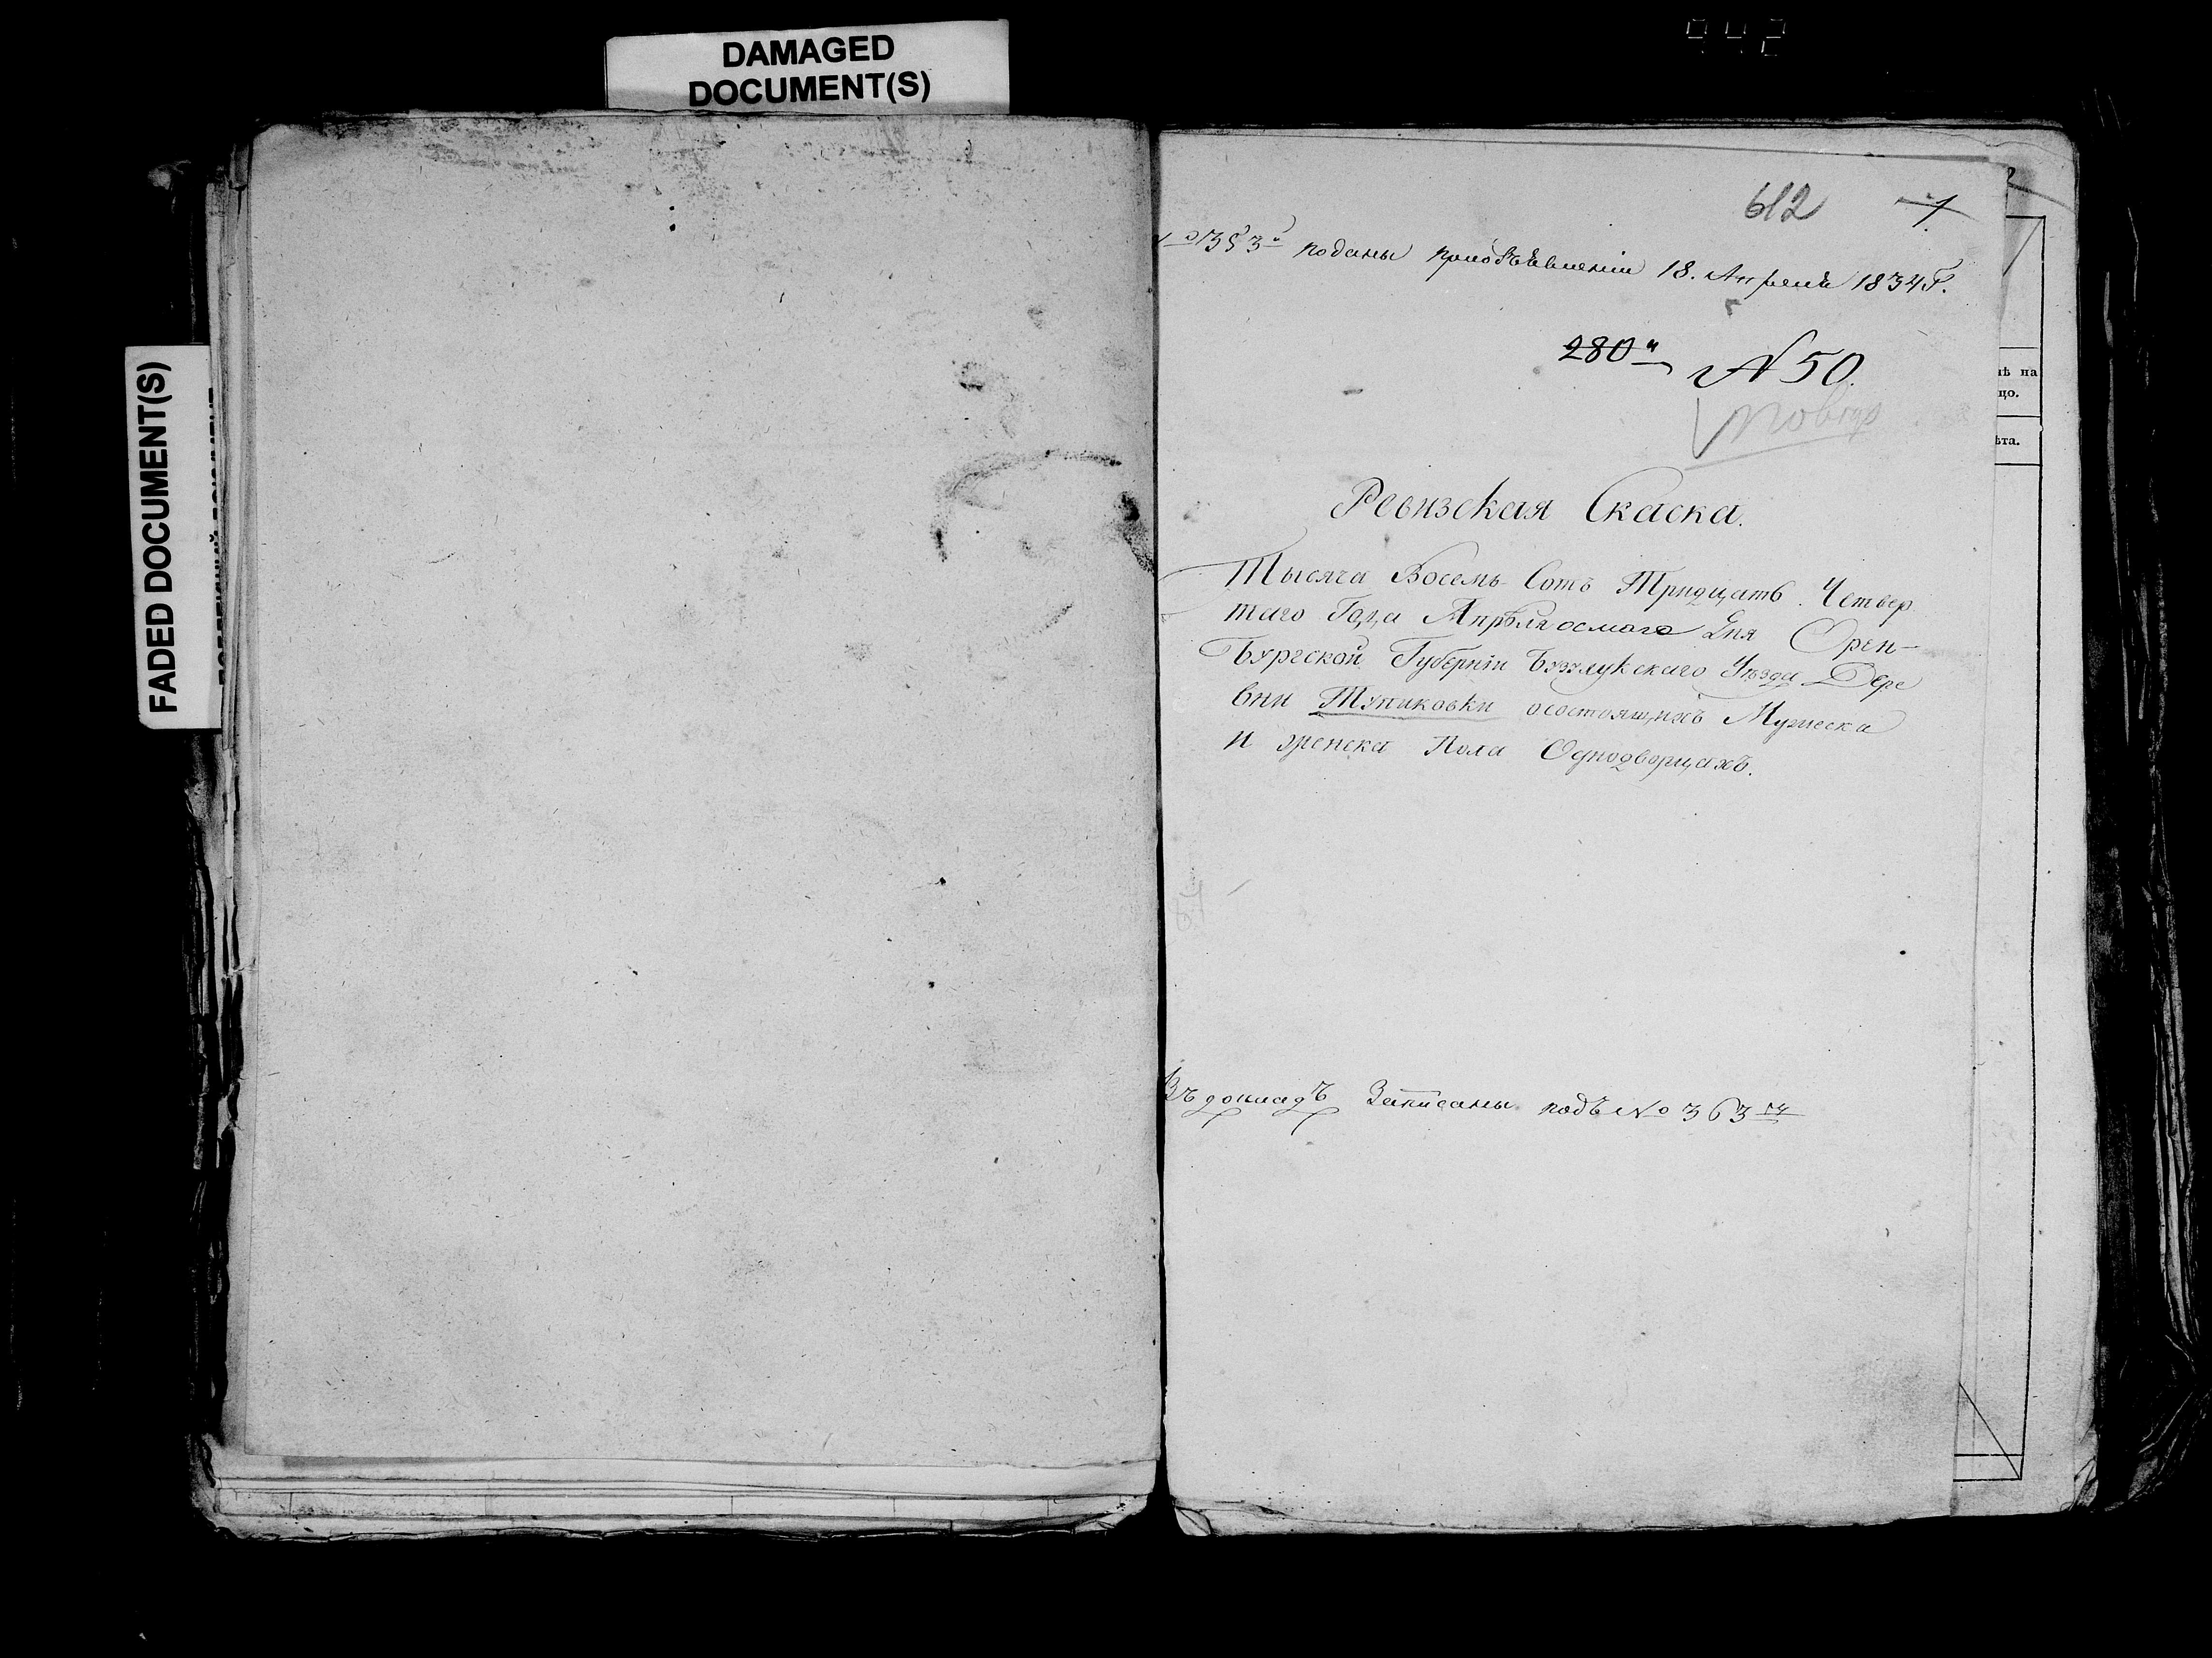 DAMAGED
DOCUMENT(S)
FADED DOCUMENT(S)
942
612 1
№ 353й поданы приобъявленіи 18. Апреля 1834 Г.
280й № 50.
повтор
Ревизская Скаска.
Тысяча Восемь Сотъ Тридцать Четвер
таго Года Апрѣля осмаго Дня Орен-
бургской Губерніи Бузулукскаго Уѣзда Дере
вни Тупиковки осостоящихъ Мужеска
и женска Пола Однодворцахъ.
57
Въ докладъ Записаны подъ № 363м
ѣ на
цо.
ѣта.